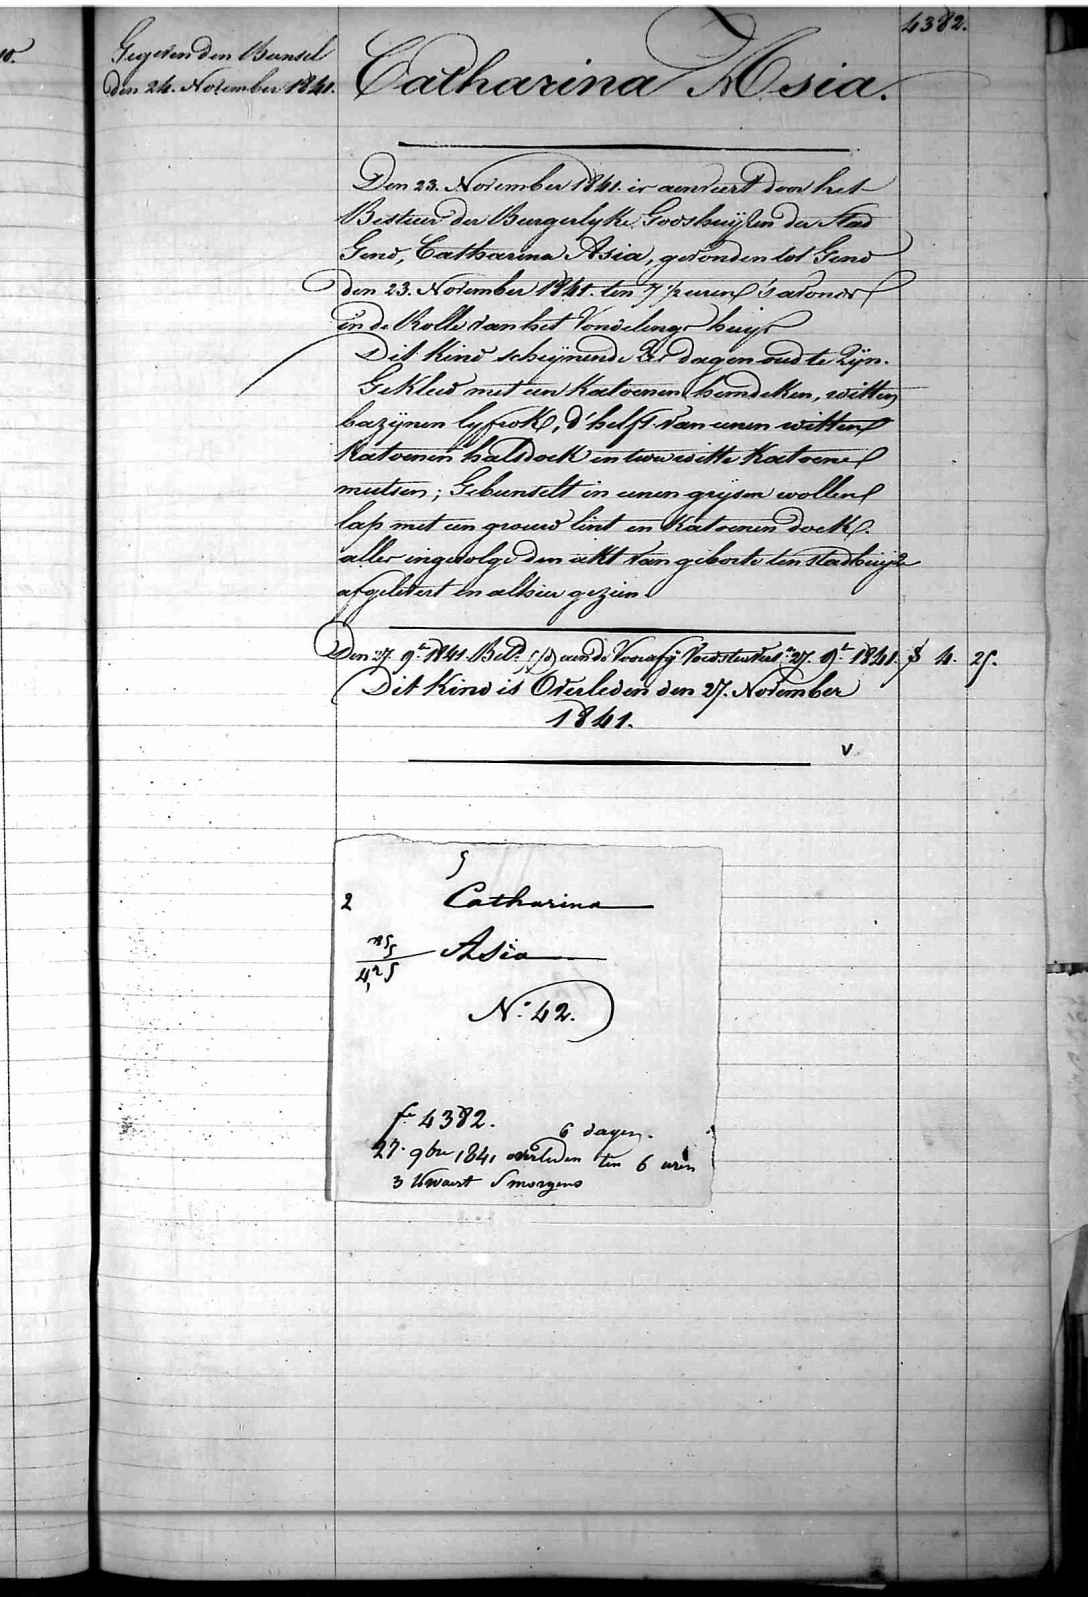 4382.
Gegeven den Bunsel
den 24. November 1841.
Catharina Asia.
Den 23. November 1841. is aenveert door het
Bestier der Burgerlyke Godshuijzen der Stad
Gend, Catharina Asia, gevonden tot Gend
den 23. November 1841. ten 7 1/2 uren 's avonds
in de Rolle van het Vondelings huijs
Dit Kind schijnende dagen oud te Zijn.
Gekleed met een Katoenen hemdeken, witten
bazijnen lyfrok, d'helft van eenen witten
Katoenen halsdoek en twee witte Katoene
mutsen; Gebunselt in eenen grijsen wollen
lap met een grouw lint en Katoenen doek.
alles ingevolge den akt van geboorte ten stadhuijze
afgelevert en alhier gezien.
Den 27. 9r. 1841. aen de 27. 9r. 1841. 4. 25.
Dit Kind is Overleden den 27. November
1841.
v
2 Catharina
Asia
No. 42.
fo 4382.
6 dagen.
27. 9bre 1841 overleden ten 6 uren
3 Kwaert Smorgens